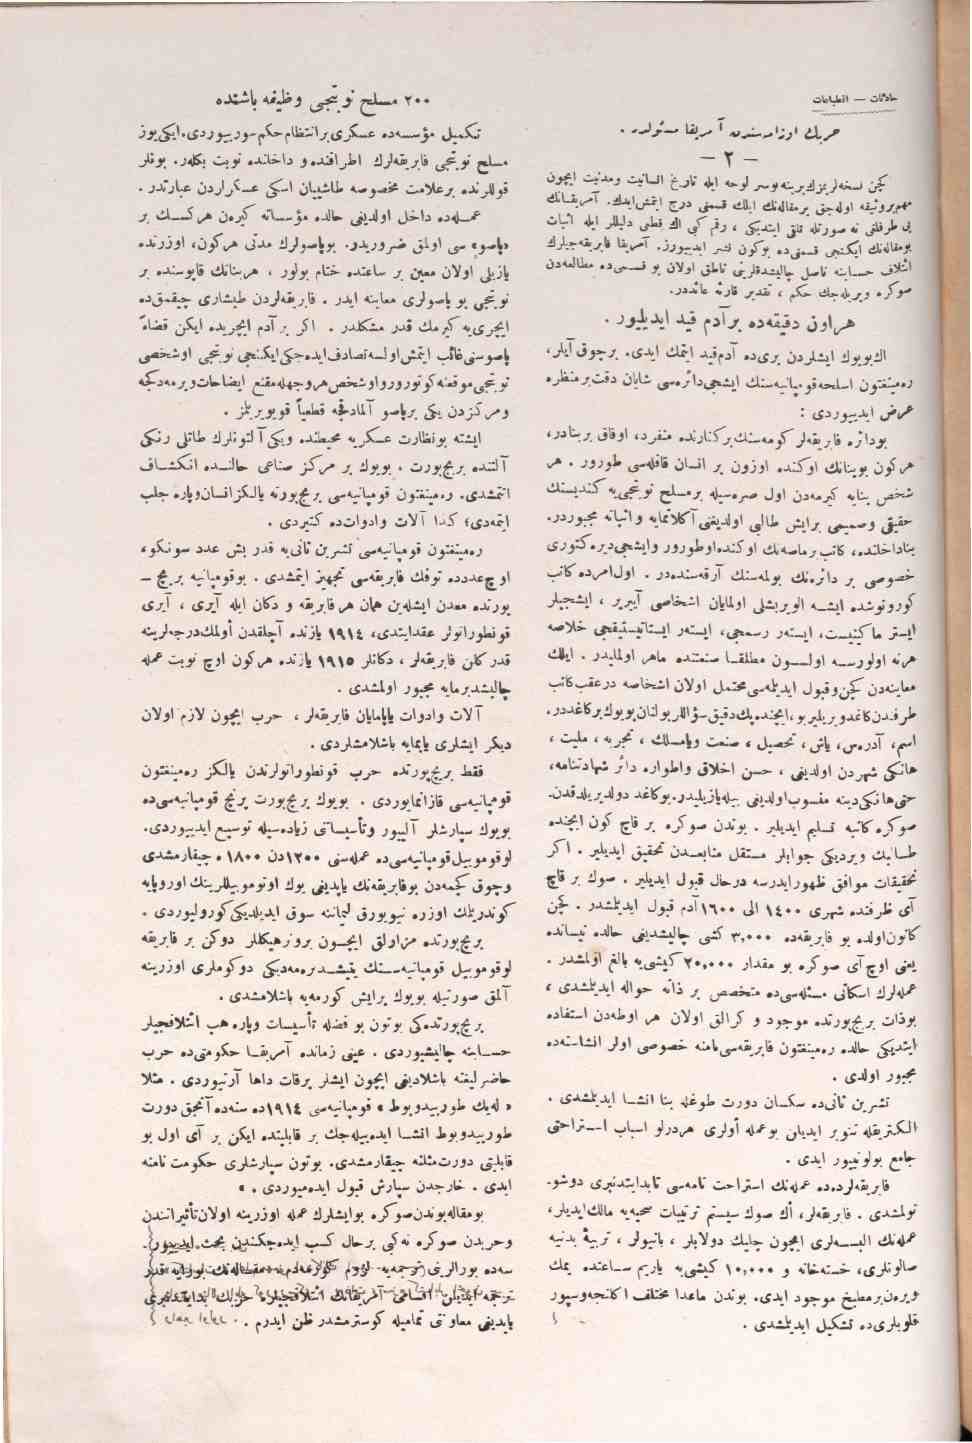 حادثات — انطباعات
حربك اوزامه‌سندن آمريقا مسئولدر .
— ٢ —
كچن نسخه‌لريمزك برينه بوسر لوحه ايله تاريخ انسانيت ومدنيت ايچون
مهم بروثيقه اوله‌جق برمقاله‌نك ايلك قسمنى درج ايتمش ايدك. آمريقانك
بى طرفلغى نه صورتله تلقى ايتديكى ، رقم كبى اك قطعى دليللر ايله اثبات
بومقاله‌نك ايكنجى قسمنى ده بوكون نشر ايديبورز. آمريقا فابريقه‌جيلرك
ائتلاف حسابنه ناصل چاليشدقلرينى ناطق اولان بو قسمى ده مطالعه‌دن
صوكره ويريله‌جك حكم ، تقدير قارئه عائددر.
هر اون دقيقه‌ده بر آدم قيد ايديلييور .
اك بويوك ايشلردن برى ده آدم قيد ايتمك ايدى. برچوق آيلر،
ره‌مينغتون اسلحه قومپانيه‌سنك ايشجى دائره‌سى شايان دقت بر منظره
عرض ايدييوردى :
بودائره فابريقه‌لر كومه‌سنك بر كنارنده منفرد، اوفاق بر بنادر،
هركون بوبنانك اوكنده اوزون بر انسان قافله‌سى طورور . هر
شخص بنايه كيرمه‌دن اول صره‌سيله بر مسلح نوبتجى‌يه كنديسنك
حقيقى وصميمى برايش طالبى اولديغنى آكلاتمايه واثباته مجبوردر.
بناداخلنده، كاتب برماصه‌نك اوكنده اوطورور وايشجى ديره‌كتورى
خصوصى بر دائره‌نك بولمه‌سنك آرقه‌سنده‌در . اول امرده كاتب
كورونوشده ايشه الويريشلى اولمايان اشخاصى آييرير ، ايشجيلر
ايستر ماكينيست، ايسته‌ر رسمجى، ايسته‌ر ايستاتيستيقجى خلاصه
هرنه اولورسه اولسون مطلقا صنعتنده ماهر اولمليدر. ايلك
معاينه‌دن كچن وقبول ايديله‌سى محتمل اولان اشخاصه درعقب كاتب
طرفندن كاغد ويريلير بو ، ايچنده پك دقيق سؤاللر بولنان بويوك بر كاغددر.
اسم، آدره‌س، ياش ، تحصيل ، صنعت ويا مسلك ، تجربه ، مليت ،
هانكى شهردن اولديغى ، حسن اخلاق واطواره دائر شهادتنامه،
حتى هانكى دينه منسوب اولديغى بيله يازيليدر. بوكاغد دولديريلدقدن
صوكره كاتبه تسليم ايديلير . بوندن صوكره بر قاچ كون ايچنده
طالبك ويرديكى جوابلر مستقل منابعدن تحقيق ايديلير . اكر
تحقيقات موافق ظهور ايدرسه درحال قبول ايديلير . صوك بر قاچ
آى ظرفنده شهرى ١٤٠٠ الى ١٦٠٠ آدم قبول ايديلمشدر . كچن
كانون اولده بو فابريقه‌ده ٣,٠٠٠ كشى چاليشديغى حالده نيسانده
يعنى اوچ آى صوكره بو مقدار ٢٠,٠٠٠ كيشى‌يه بالغ اولمشدر .
عمله‌لرك اسكانى مسئله‌سى ده متخصص بر ذاته حواله ايديلمشدى ،
بوذات بريج‌پورتده موجود و كرالق اولان هر اوطه‌دن استفاده
ايتديكى حالده ره‌مينغتون فابريقه‌سى نامنه خصوصى اولر انشاسنه‌ده
مجبور اولدى .
تشرين ثانى‌ده سكسان دورت طوغله بنا انشا ايديلمشدى .
الكتريقله تنوير ايديلن بو عمله أولرى هردرلو اسباب استراحتى
جامع بولونييور ايدى .
فابريقه‌لرده‌ده عمله‌نك استراحت تامه‌سى تا بدايتدنبرى دوشو-
نولمشدى . فابريقه‌لر، أك صوك سيستم ترتيبات صحيه‌يه مالك ايديلر،
عمله‌نك البسه‌لرى ايچون چليك دولابلر ، بانيولر ، تربيهٔ بدنيه
صالونلرى، خسته‌خانه و ١٠,٠٠٠ كيشى‌يه ياريم ساعتده يمك
ويرەن بر مطبخ موجود ايدى. بوندن ماعدا مختلف اكلنجه وسپور
قلوبلرى ده تشكيل ايديلمشدى .
٢٠٠ مسلح نوبتجى وظيفه باشنده
تكميل مؤسسه‌ده عسكرى بر انتظام حكم سورييوردى. ايكى يوز
مسلح نوبتجى فابريقه‌لرك اطرافنده و داخلنده نوبت بكلەر. بونلر
قوللرنده بر علامت مخصوصه طاشييان اسكى عسكرلردن عبارتدر .
عمله‌ده داخل اولديغى حالده مؤسساته كيرەن هركسك بر
«پاسو» سى اولمق ضروريدر. بوپاصولرك مدتى هركون، اوزرنده
يازيلى اولان معين بر ساعتده ختام بولور ، هر بنانك قاپوسنده بر
نوبتجى بو پاصولرى معاينه ايدر . فابريقه‌لردن طيشارى چيقمق ده
ايچرى‌يه كيرمك قدر مشكلدر . اكر بر آدم ايچريده ايكن قضاءً
پاصوسنى غائب ايتمش اولسه تصادف ايده‌جكى ايكنجى نوبتجى اوشخصى
نوبتجى موقعنه كوتورور و اوشخص هر وجهله مقنع ايضاحات ويرمه‌دكجه
ومركزدن يكى بر پاصو آلمادقجه قطعياً قويويريلمز .
ايشته بونظارت عسكريه محيطنده ويكى آلتونلرك طاتلى رنكى
آلتنده بريج‌پورت . بويوك بر مركز صناعى حالنده انكشاف
ايتمشدى. ره‌مينغتون قومپانيه‌سى بريج‌پورته يالكز انسان وپاره جلب
ايتمەدى؛ كذا آلات وادوات ده كتيردى .
ره‌مينغتون قومپانيه‌سى تشرين ثانى‌يه قدر بش عدد سونكو،
اوچ عددده توفنك فابريقه‌سى تجهيز ايتمشدى . بوقومپانيه بريج —
پورتده معدن ايشله‌ين همان هر فابريقه و دكان ايله آيرى ، آيرى
قونطوراتولر عقد ايتدى، ١٩١٤ يازنده آچلقدن أولمك درجه‌لرينه
قدر كلن فابريقه‌لر ، دكانلر ١٩١٥ يازنده هركون اوچ نوبت عمله
چاليشديرمايه مجبور اولمشدى .
آلات وادوات ياپامايان فابريقه‌لر ، حرب ايچون لازم اولان
ديكر ايشلرى ياپمايه باشلامشلردى .
فقط بريج‌پورتده حرب قونطوراتولرندن يالكز ره‌مينغتون
قومپانيه‌سى قازانمايوردى . بويوك بريج‌پورت پرنج قومپانيه‌سى ده
بويوك سپارشلر آلييور وتأسيساتى زياده‌سيله توسيع ايدييوردى.
لوقوموبيل قومپانيه‌سى ده عمله‌سنى ١٢٠٠ دن ١٨٠٠ ه چيقارمشدى
وچوق كچمه‌دن بوفابريقه‌نك ياپديغى يوك اوتوموبيللرينك اوروپايه
كوندريلمك اوزره نيويورق ليماننه سوق ايديلديكى كورولييوردى .
بريج‌پورتده مزارلق ايچون برونز هيكللر دوكن بر فابريقه
لوقوموبيل قومپانيه‌سنك يتيشديره‌مه‌ديكى دوكوملرى اوزرينه
آلمق صورتيله بويوك برايش كورمه‌يه باشلامشدى .
بريج‌پورتده‌كى بوتون بو فضله تأسيسات وپاره هب ائتلافجيلر
حسابنه چاليشيوردى . عينى زمانده آمريقا حكومتى ده حرب
حاضرليغنه باشلاديغى ايچون ايشلر برقات داها آرتيوردى . مثلا
« له‌يك طورپيدوبوط » قومپانيه‌سى ١٩١٤ ده سنه‌ده آنجق دورت
طورپيدوبوط انشا ايده‌بيله‌جك بر قابليتده ايكن بر آى اول بو
قابليتى دورت مثلنه چيقارمشدى. بوتون سپارشلرى حكومت نامنه
ايدى . خارجدن سپارش قبول ايده‌ميوردى . »
بومقاله بوندن صوكره بوايشلرك عمله اوزرينه اولان تأثيراتندن
وحربدن صوكره نه كبى برحال كسب ايده‌جكندن بحث ايدييور.
سه‌ده بورالرينى ترجمه‌يه لزوم كورمه‌دم. مقاله‌نك بورايه قدر
ترجمه ايديلن اقسامى آمريقانك ائتلافجيلره حربك بدايتندنبرى
ياپديغى معاونتى تماميله كوسترمشدر ظن ايدرم .